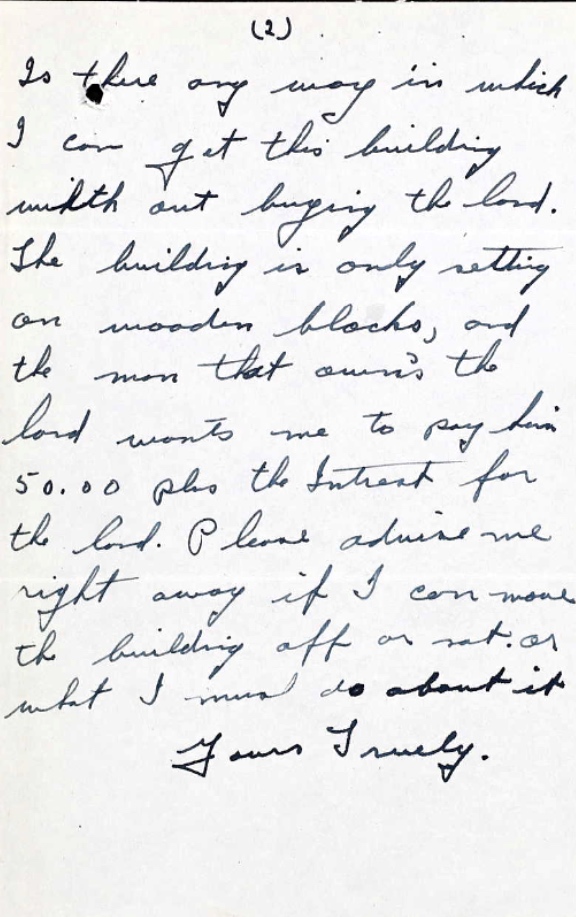 (2)
Is there any way in which
I can get this building
width out buying the land.
The building is only setting
on wooden blocks, and
the man that own's the
land wants me to pay him
50.00 plus the Intrest for
the land. Please advise me
right away if I can move
the building off or not. or
what I must do about it
Yours Truely.